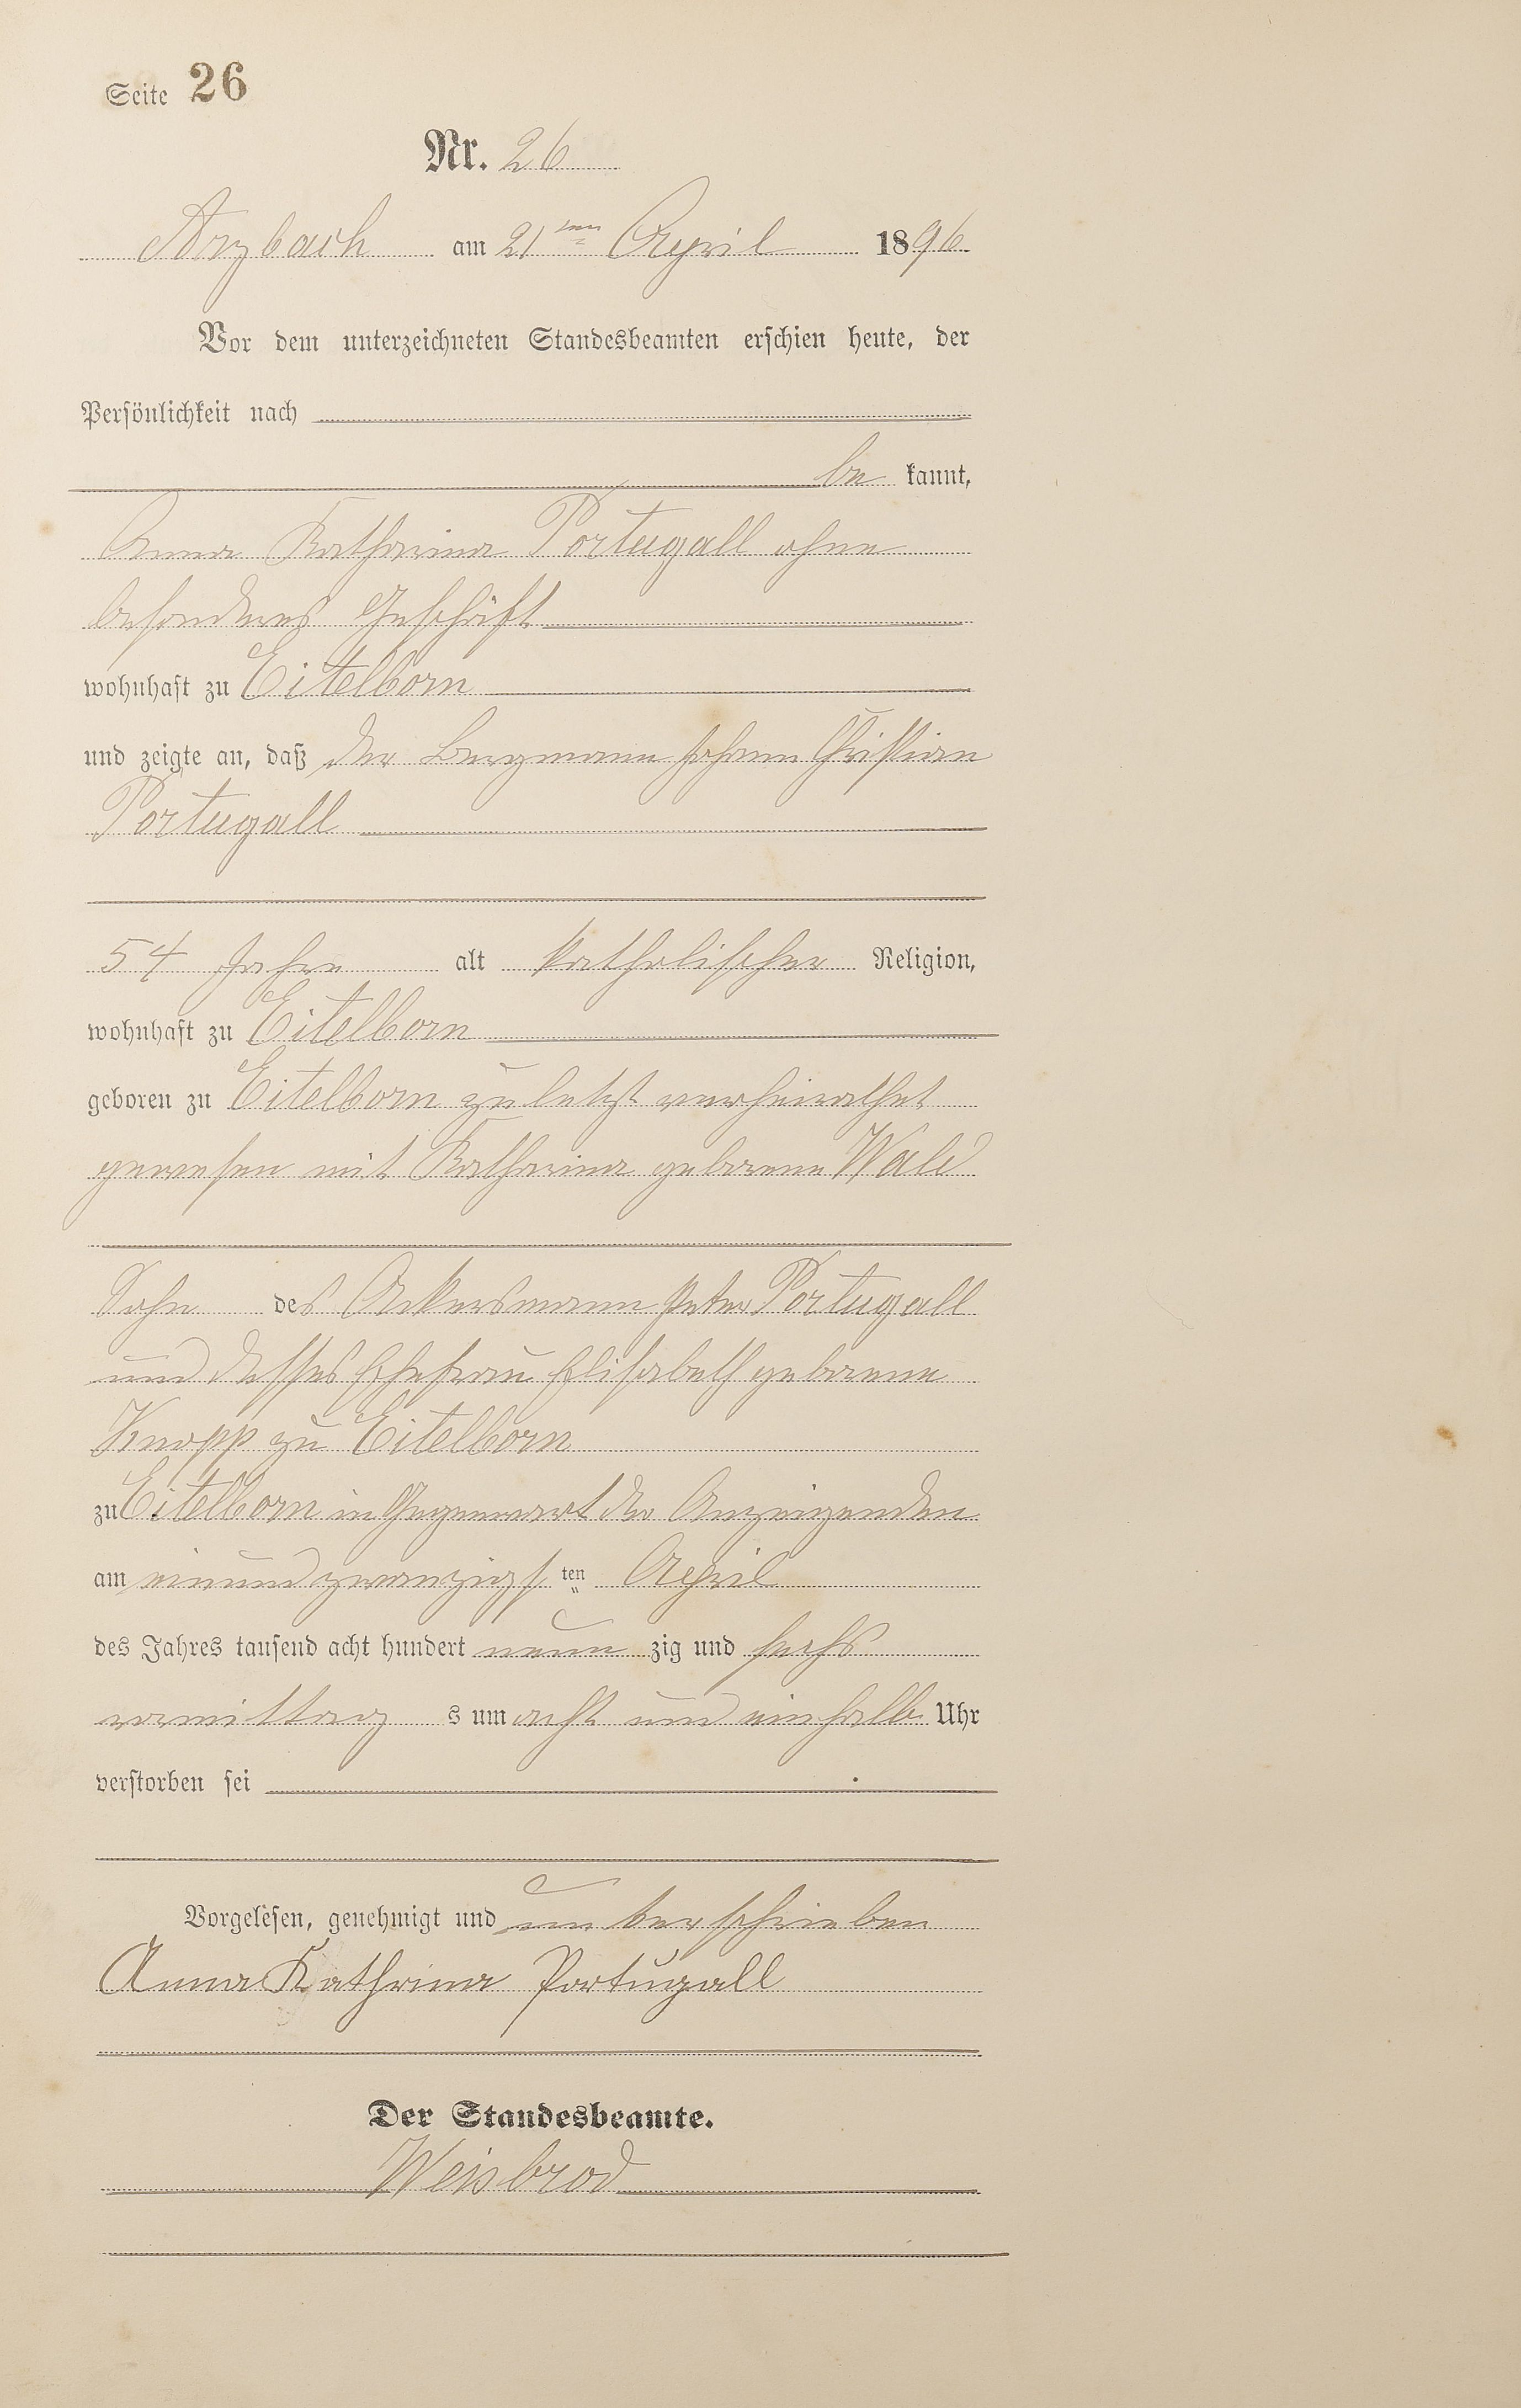 Seite 26
Nr. 26
Arzbach am 21ten April 1896
Vor dem unterzeichneten Standesbeamten erschien heute, der
Persönlichkeit nach
be kannt,
Anna Katharina Portugall ohne
besonderes Geschäft
wohnhaft zu Eitelborn
und zeigte an, daß der Bergmann Johann Christian
Portugall
54 Jahre alt katholischer Religion,
wohnhaft zu Eitelborn
geboren zu Eitelborn zuletzt verheirathet
gewesen mit Katharina geborene Wald
Sohn des Ackersmann Peter Portugall
und dessen Ehefrau Elisabeth geborene
Knopp zu Eitelborn
zu Eitelborn in Gegenwart der Anzeigenden
am einundzwanzigs ten April
des Jahres tausend acht hundert neun zig und sechs
vormittag s um acht und einhalb Uhr
verstorben sei
Vorgelesen, genehmigt und unterschrieben
Anna Kathrina Portugall
Der Standesbeamte.
Weisbrod